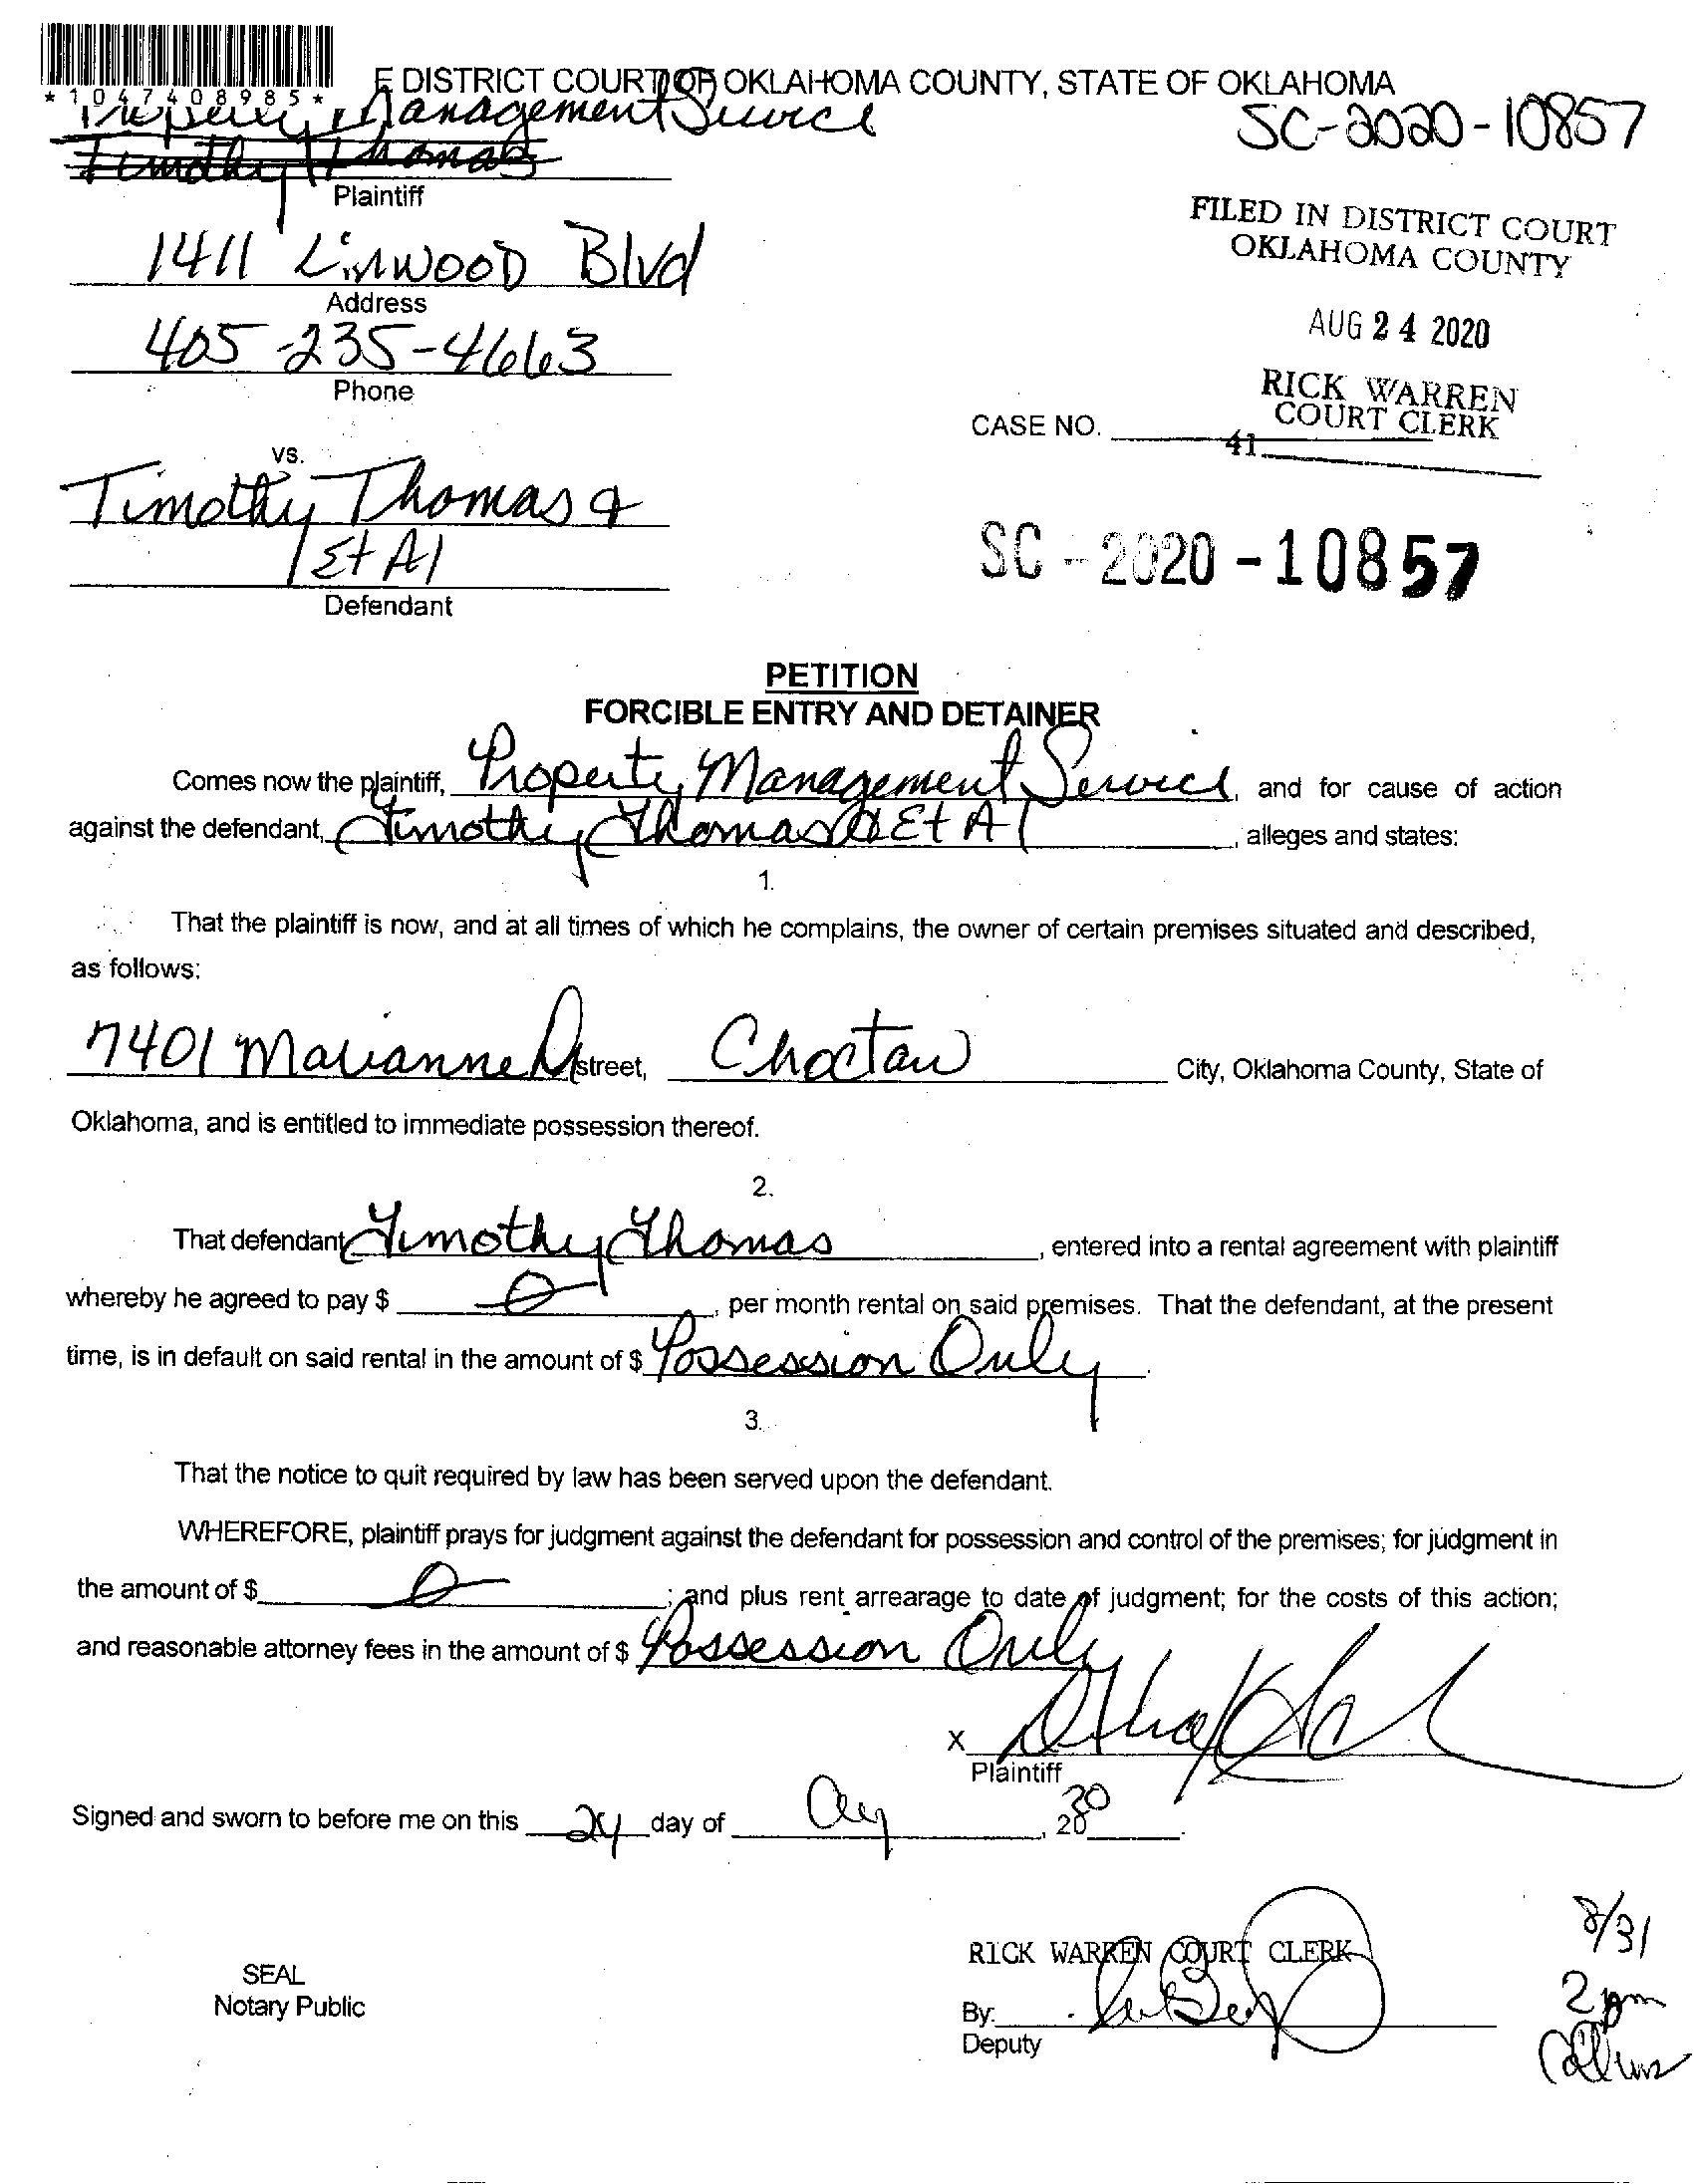 *1047408985*
E DISTRICT COURT OF OKLAHOMA COUNTY, STATE OF OKLAHOMA
Property Management Service
SC-2020-10857
Timothy Thomas
Plaintiff
FILED IN DISTRICT COURT
OKLAHOMA COUNTY
1411 LiNWOOD Blvd
Address
AUG 24 2020
405-235-4663
Phone
RICK WARREN
COURT CLERK
CASE NO.
41
vs.
Timothy Thomas &
Et Al
Defendant
SC-2020-10857
PETITION
FORCIBLE ENTRY AND DETAINER
Comes now the plaintiff, Property Management Service, and for cause of action
against the defendant, Timothy Thomas & Et Al, alleges and states:
1.
That the plaintiff is now, and at all times of which he complains, the owner of certain premises situated and described,
as follows:
7401 Marianne Dr street, Choctaw City, Oklahoma County, State of
Oklahoma, and is entitled to immediate possession thereof.
2.
That defendant Timothy Thomas, entered into a rental agreement with plaintiff
whereby he agreed to pay $ 0, per month rental on said premises. That the defendant, at the present
time, is in default on said rental in the amount of $ Possession Only.
3.
That the notice to quit required by law has been served upon the defendant.
WHEREFORE, plaintiff prays for judgment against the defendant for possession and control of the premises; for judgment in
the amount of $ 0; and plus rent arrearage to date of judgment; for the costs of this action;
and reasonable attorney fees in the amount of $ Possession Only
X
Plaintiff
Signed and sworn to before me on this 24 day of Aug, 2020.
8/31
RICK WARREN COURT CLERK
SEAL
Notary Public
2pm
By:
Deputy
Collins